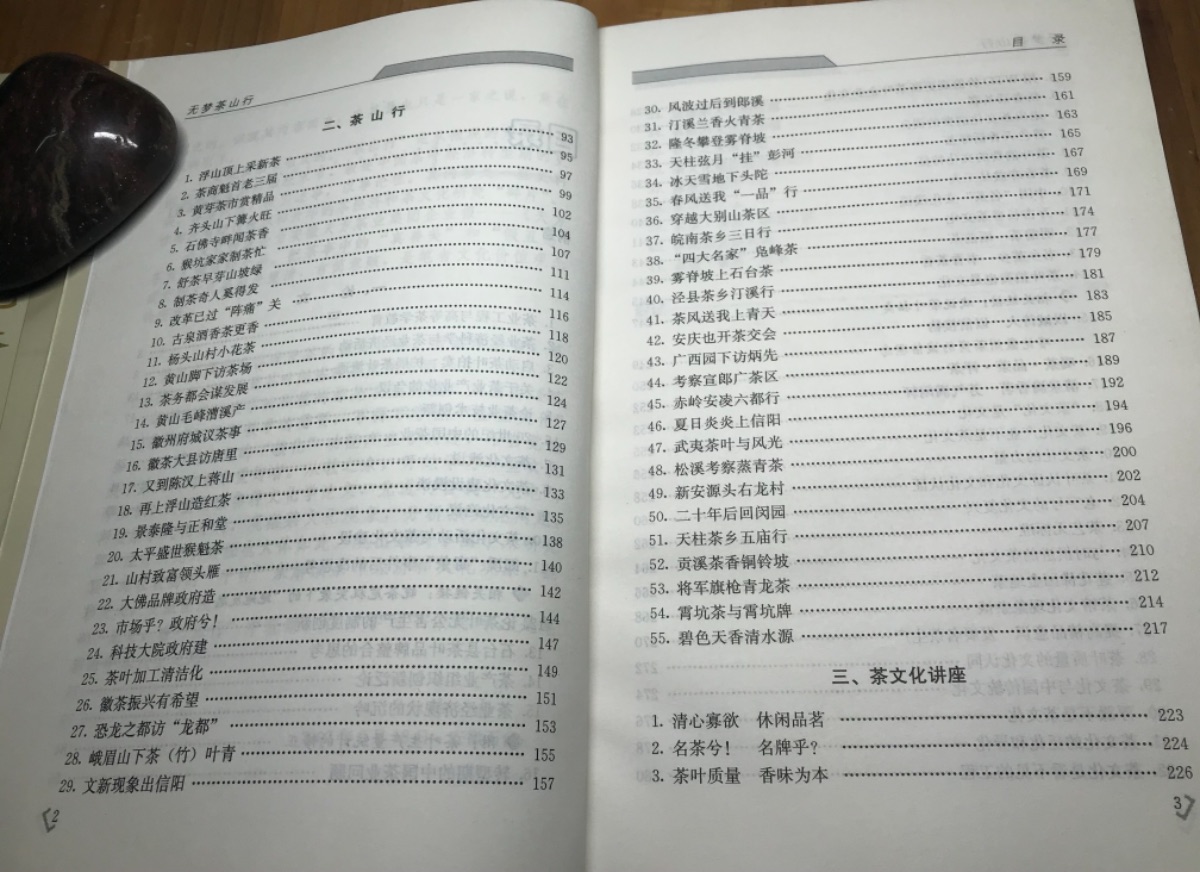 无梦茶山行
二、茶山行
1. 浮山顶上采新茶 …… 93
2. 茶商魁首老三届 …… 95
3. 黄芽茶市赏精品 …… 97
4. 齐头山下篝火旺 …… 99
5. 石佛寺畔闻茶香 …… 102
6. 猴坑家家制茶忙 …… 104
7. 舒茶早芽山坡绿 …… 107
8. 制茶奇人奚得发 …… 111
9. 改革已过“阵痛”关 …… 114
10. 古泉酒香茶更香 …… 116
11. 杨头山村小花茶 …… 118
12. 黄山脚下访茶场 …… 120
13. 茶务都会谋发展 …… 122
14. 黄山毛峰漕溪产 …… 124
15. 徽州府城议茶事 …… 127
16. 徽茶大县访唐里 …… 129
17. 又到陈汉上蒋山 …… 131
18. 再上浮山造红茶 …… 133
19. 景泰隆与正和堂 …… 135
20. 太平盛世猴魁茶 …… 138
21. 山村致富领头雁 …… 140
22. 大佛品牌政府造 …… 142
23. 市场乎？政府兮！ …… 144
24. 科技大院政府建 …… 147
25. 茶叶加工清洁化 …… 149
26. 徽茶振兴有希望 …… 151
27. 恐龙之都访“龙都” …… 153
28. 峨眉山下茶（竹）叶青 …… 155
29. 文新现象出信阳 …… 157
2
目 录
30. 风波过后到郎溪 …… 159
31. 汀溪兰香火青茶 …… 161
32. 隆冬攀登雾脊坡 …… 163
33. 天柱弦月“挂”彭河 …… 165
34. 冰天雪地下头陀 …… 167
35. 春风送我“一品”行 …… 169
36. 穿越大别山茶区 …… 171
37. 皖南茶乡三日行 …… 174
38. “四大名家”凫峰茶 …… 177
39. 雾脊坡上石台茶 …… 179
40. 泾县茶乡汀溪行 …… 181
41. 茶风送我上青天 …… 183
42. 安庆也开茶交会 …… 185
43. 广西园下访炳先 …… 187
44. 考察宣郎广茶区 …… 189
45. 赤岭安凌六都行 …… 192
46. 夏日炎炎上信阳 …… 194
47. 武夷茶叶与风光 …… 196
48. 松溪考察蒸青茶 …… 200
49. 新安源头右龙村 …… 202
50. 二十年后回闵园 …… 204
51. 天柱茶乡五庙行 …… 207
52. 贡溪茶香铜铃坡 …… 210
53. 将军旗枪青龙茶 …… 212
54. 霄坑茶与霄坑牌 …… 214
55. 碧色天香清水源 …… 217
三、茶文化讲座
1. 清心寡欲 休闲品茗 …… 223
2. 名茶兮！ 名牌乎？ …… 224
3. 茶叶质量 香味为本 …… 226
3